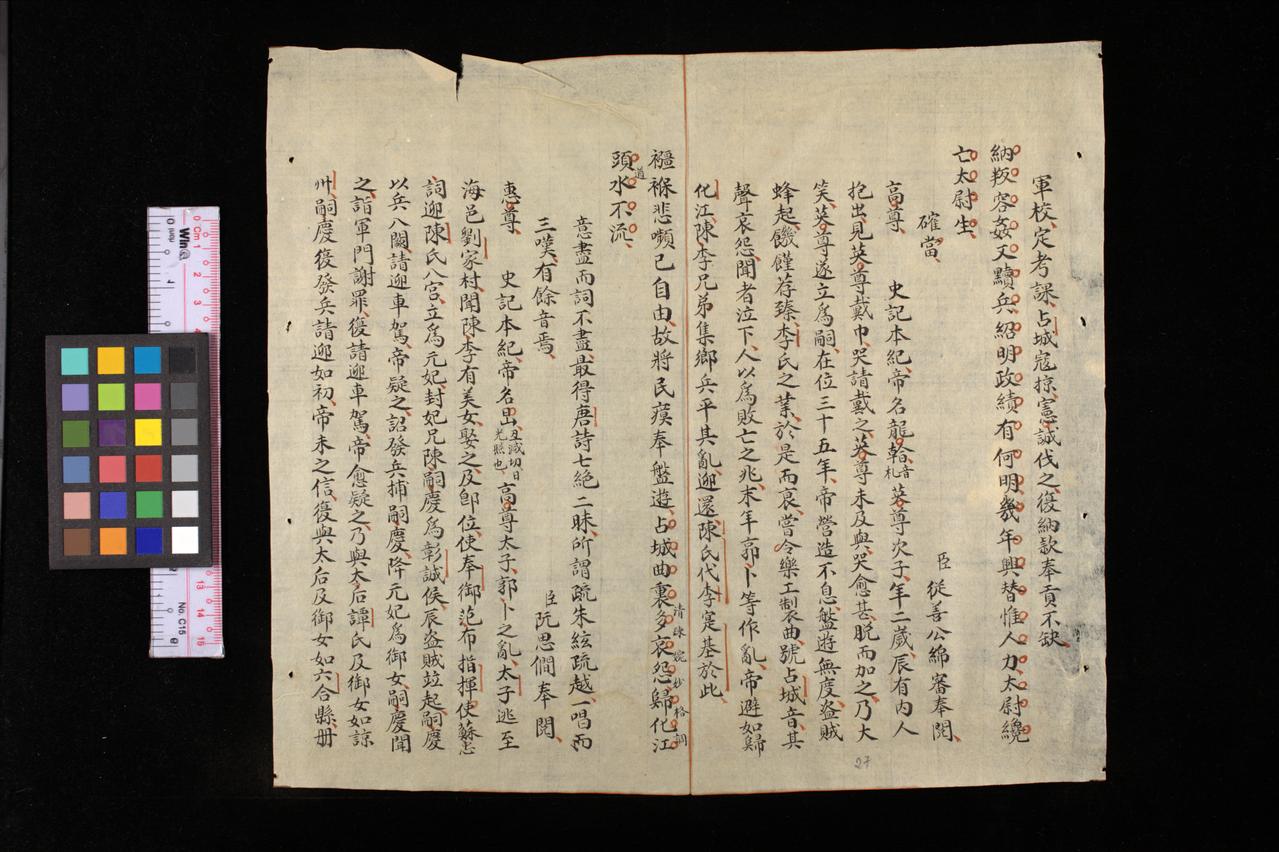 軍校、定考課、占城寇掠、憲誠伐之、復納款奉貢不缺、
納叛容姦又黷兵紹明政績有何明幾年興替惟人力太尉纔
亡太尉生
臣從善公綿審奉閱、
確當、
高尊、史記本紀、帝名龍𣉙音札英尊次子、年二歲、辰有內人
抱出、見英尊戴巾、哭請戴之、英尊未及與、哭愈甚、脫而加之、乃大
笑、英尊遂立爲嗣、在位三十五年、帝營造不息、盤遊無度、盗賊
蜂起、饑饉荐臻、李氏之業、於是而衰、嘗令樂工製曲、號占城音、其
聲哀怨、聞者泣下、人以爲敗亡之兆、末年郭卜等作亂、帝避如歸
化江、陳李兄弟集鄉兵平其亂、迎還、陳氏代李寔基於此、
襁褓悲嚬已自由、故將民瘼奉盤遊、占城曲裏多哀怨歸化江
清 婉妙 格調
頭水不流
道
意盡而詞不盡、最得唐詩七絕二昧、所謂疏朱絃疏越、一唱而
三嘆、有餘音焉、
臣阮思僩奉閱、
惠尊、史記本紀、帝名旵、丑減切日光照也、高尊太子、郭卜之亂、太子逃至
海邑劉家村、聞陳李有美女、娶之、及卽位、使奉御范布指揮使蘇忠
詞迎陳氏入宮、立爲元妃、封妃兄陳嗣慶爲彰誠侯、辰盗賊竝起、嗣慶
以兵入闕請迎車駕、帝疑之、詔發兵捕嗣慶、降元妃爲御女、嗣慶聞
之、詣軍門謝罪、復請迎車駕、帝愈疑之、乃與太后譚氏及御女如諒
州、嗣慶復發兵請迎如初、帝未之信、復與太后及御女如六合縣、册
27